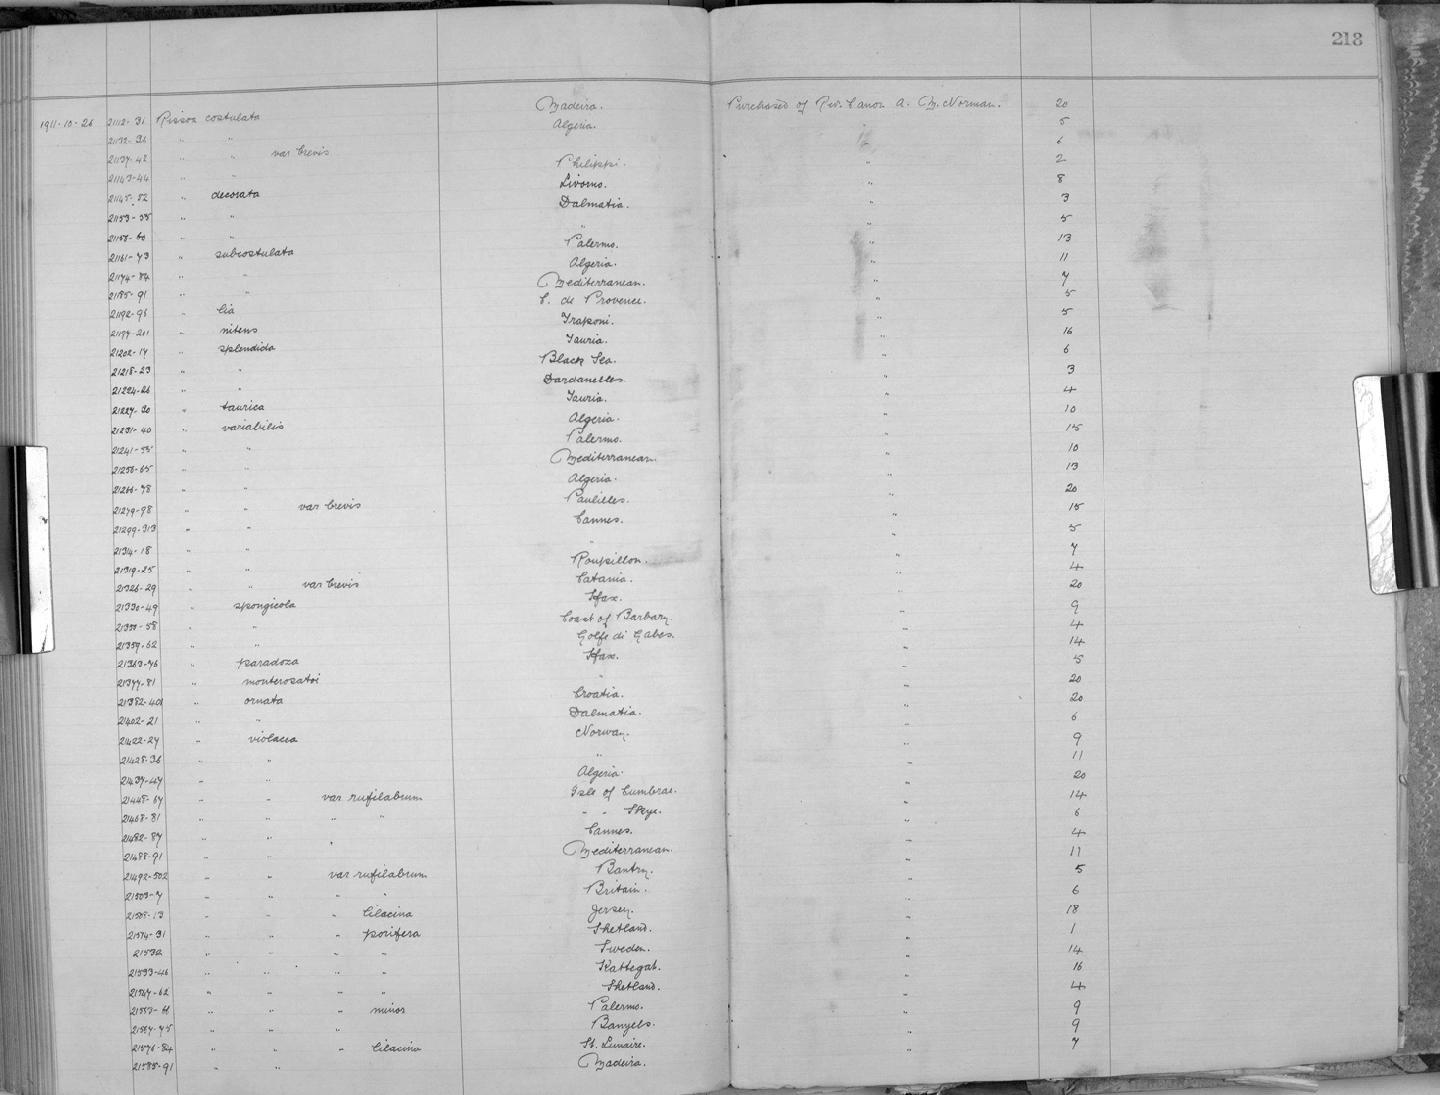 218
1911-10-26 2112-31 Rissoa costulata Madeira. Purchased of Rev. Canon A. M. Norman. 20
21132-36 " " Algeria. " 5
21137-42 " " var brevis " 6
21143-44 " " Philippi. " 2
21145-52 " decorata Livorno. " 8
21153-55 " " Dalmatia. " 3
21156-60 " " " " 5
21161-73 " subcostulata Palermo. " 13
21174-84 " " Algeria. " 11
21185-91 " " Mediterranean. " 7
21192-96 " lia C. de Provence. " 5
21197-201 " nitens Trapani. " 5
21202-17 " splendida Tauria. " 16
21218-23 " " Black Sea. " 6
21224-26 " " Dardanelles. " 3
21227-30 " taurica Tauria. " 4
21231-40 " variabilis Algeria. " 10
21241-55 " " Palermo. " 15
21256-65 " " Mediterranean. " 10
21266-78 " " Algeria. " 13
21279-98 " " var brevis Paulilles. " 20
21299-313 " " Cannes. " 15
21314-18 " " " " 5
21319-25 " " Roussillon. " 7
21326-29 " " var brevis Catania. " 4
21330-49 " spongicola Sfax. " 20
21350-58 " " Coast of Barbary. " 9
21359-62 " " Golfe di Gabes. " 4
21363-76 " paradoxa Sfax. " 14
21377-81 " monterosatoi " " 5
21382-401 " ornata Croatia. " 20
21402-21 " " Dalmatia. " 20
21422-27 " violacea Norway. " 6
21428-36 " " " " 9
21437-47 " " Algeria. " 11
21448-67 " " var rufilabrum Isle of Cumbrae. " 20
21468-81 " " " " " " Skye. " 14
21482-87 " " Cannes. " 6
21488-91 " " " Mediterranean. " 4
21492-502 " " var rufilabrum Bantry. " 11
21503-7 " " " " Britain. " 5
21508-13 " " " lilacina Jersey. " 6
21514-31 " " " porifera Shetland. " 18
21532 " " " " Sweden. " 1
21533-46 " " " " Kattegat. " 14
21547-62 " " " " Shetland. " 16
21563-66 " " " minor Palermo. " 4
21567-75 " " " Banyuls. " 9
21576-84 " " " lilacina St. Lunaire. " 9
21585-91 " " Madeira. " 7